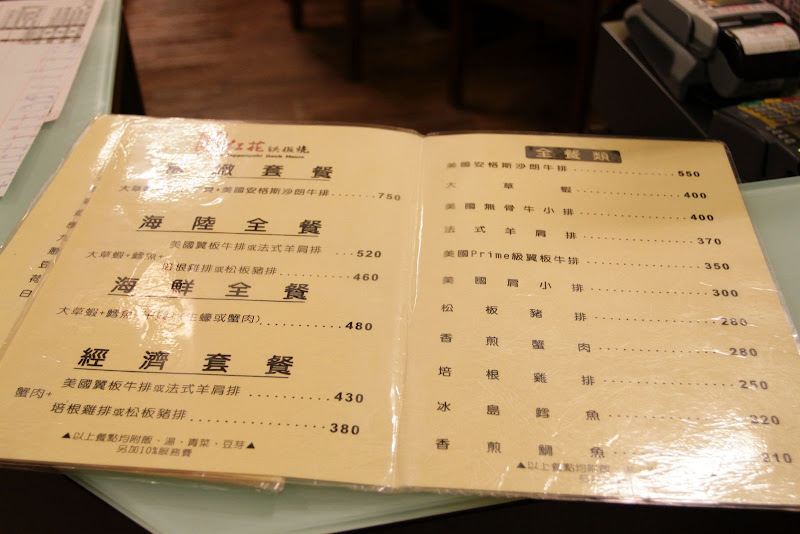 紅花鐵板燒
Teppanyaki Steak House
套餐
大草蝦 美國安格斯沙朗牛排 750
海陸全餐
美國翼板牛排或法式羊肩排 520
大草蝦+鱈魚+
培根雞排或松板豬排 460
海鮮全餐
大草蝦+鱈魚 蠔或蟹肉) 480
經濟套餐
美國翼板牛排或法式羊肩排 430
蟹肉+
培根雞排或松板豬排 380
▲以上餐點均附飯、湯、青菜、豆芽▲
另加10%服務費
全餐類
美國安格斯沙朗牛排 550
大草蝦 400
美國無骨牛小排 400
法式羊肩排 370
美國Prime級翼板牛排 350
美國肩小排 300
松板豬排 280
香煎蟹肉 280
培根雞排 250
冰島鱈魚 220
香煎鯛魚 210
▲以上餐點均附飯、湯